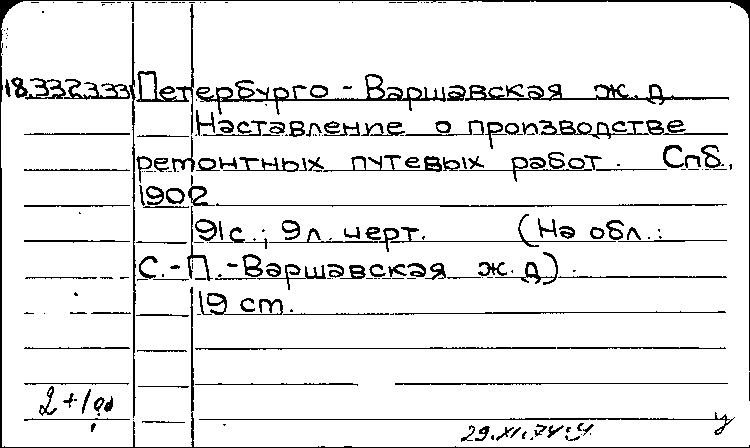 18.332.333 Петербурго - Варшавская ж.д.
Наставление о производстве
ремонтных путевых работ. Спб.,
1902.
91с.; 9л. черт. (На обл.:
С.-П.-Варшавская ж.д).
19 cm.
2 + 1
29.XI.74.
у